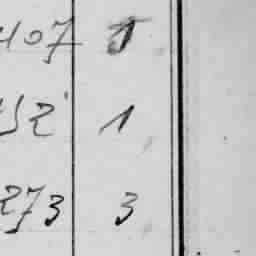 407 1
152 1
273 3